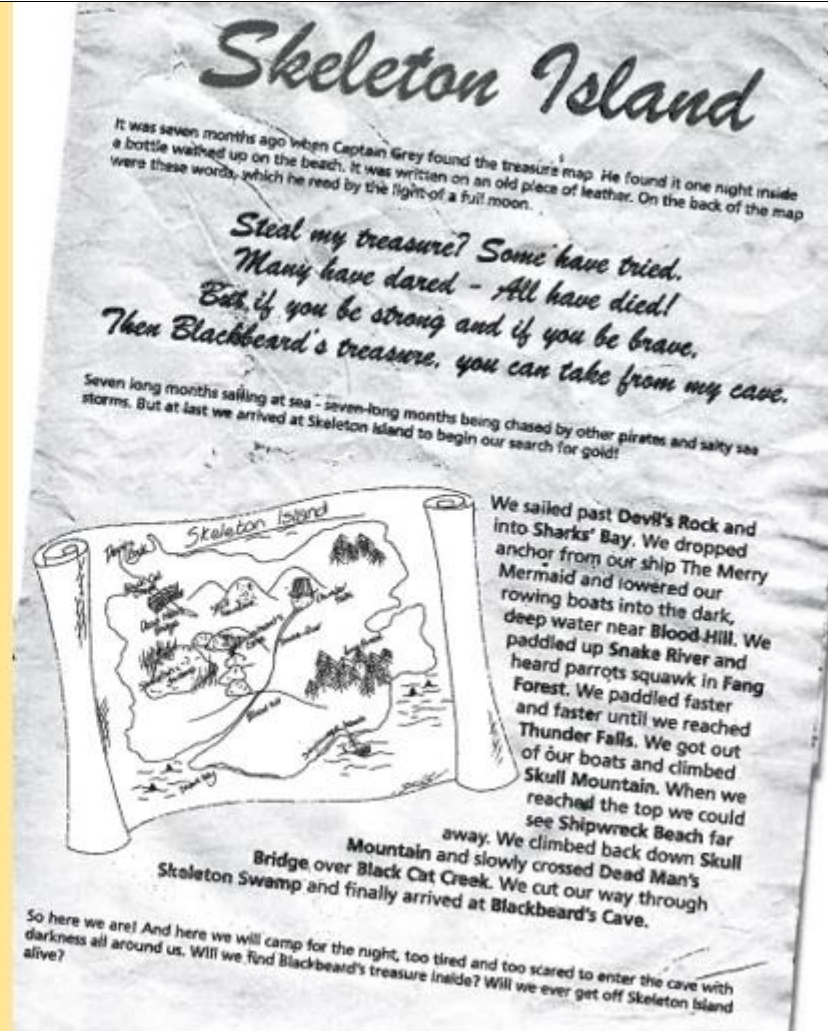 Skeleton Island
It was seven months ago when Captain Grey found the treasure map. He found it one night inside
a bottle washed up on the beach. It was written on an old piece of leather. On the back of the map
were these words, which he read by the light of a full moon.
Steal my treasure? Some have tried.
Many have dared - All have died!
But if you be strong and if you be brave,
Then Blackbeard's treasure, you can take from my cave.
Seven long months sailing at sea - seven long months being chased by other pirates and salty sea
storms. But at last we arrived at Skeleton Island to begin our search for gold!
Skeleton Island
We sailed past Devil's Rock and
into Sharks' Bay. We dropped
anchor from our ship The Merry
Mermaid and lowered our
rowing boats into the dark,
deep water near Blood Hill. We
paddled up Snake River and
heard parrots squawk in Fang
Forest. We paddled faster
and faster until we reached
Thunder Falls. We got out
of our boats and climbed
Skull Mountain. When we
reached the top we could
see Shipwreck Beach far
away. We climbed back down Skull
Mountain and slowly crossed Dead Man's
Bridge over Black Cat Creek. We cut our way through
Skeleton Swamp and finally arrived at Blackbeard's Cave.
So here we are! And here we will camp for the night, too tired and too scared to enter the cave with
darkness all around us. Will we find Blackbeard's treasure inside? Will we ever get off Skeleton Island
alive?